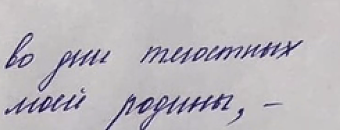 во дни тягостных
моей родины, –